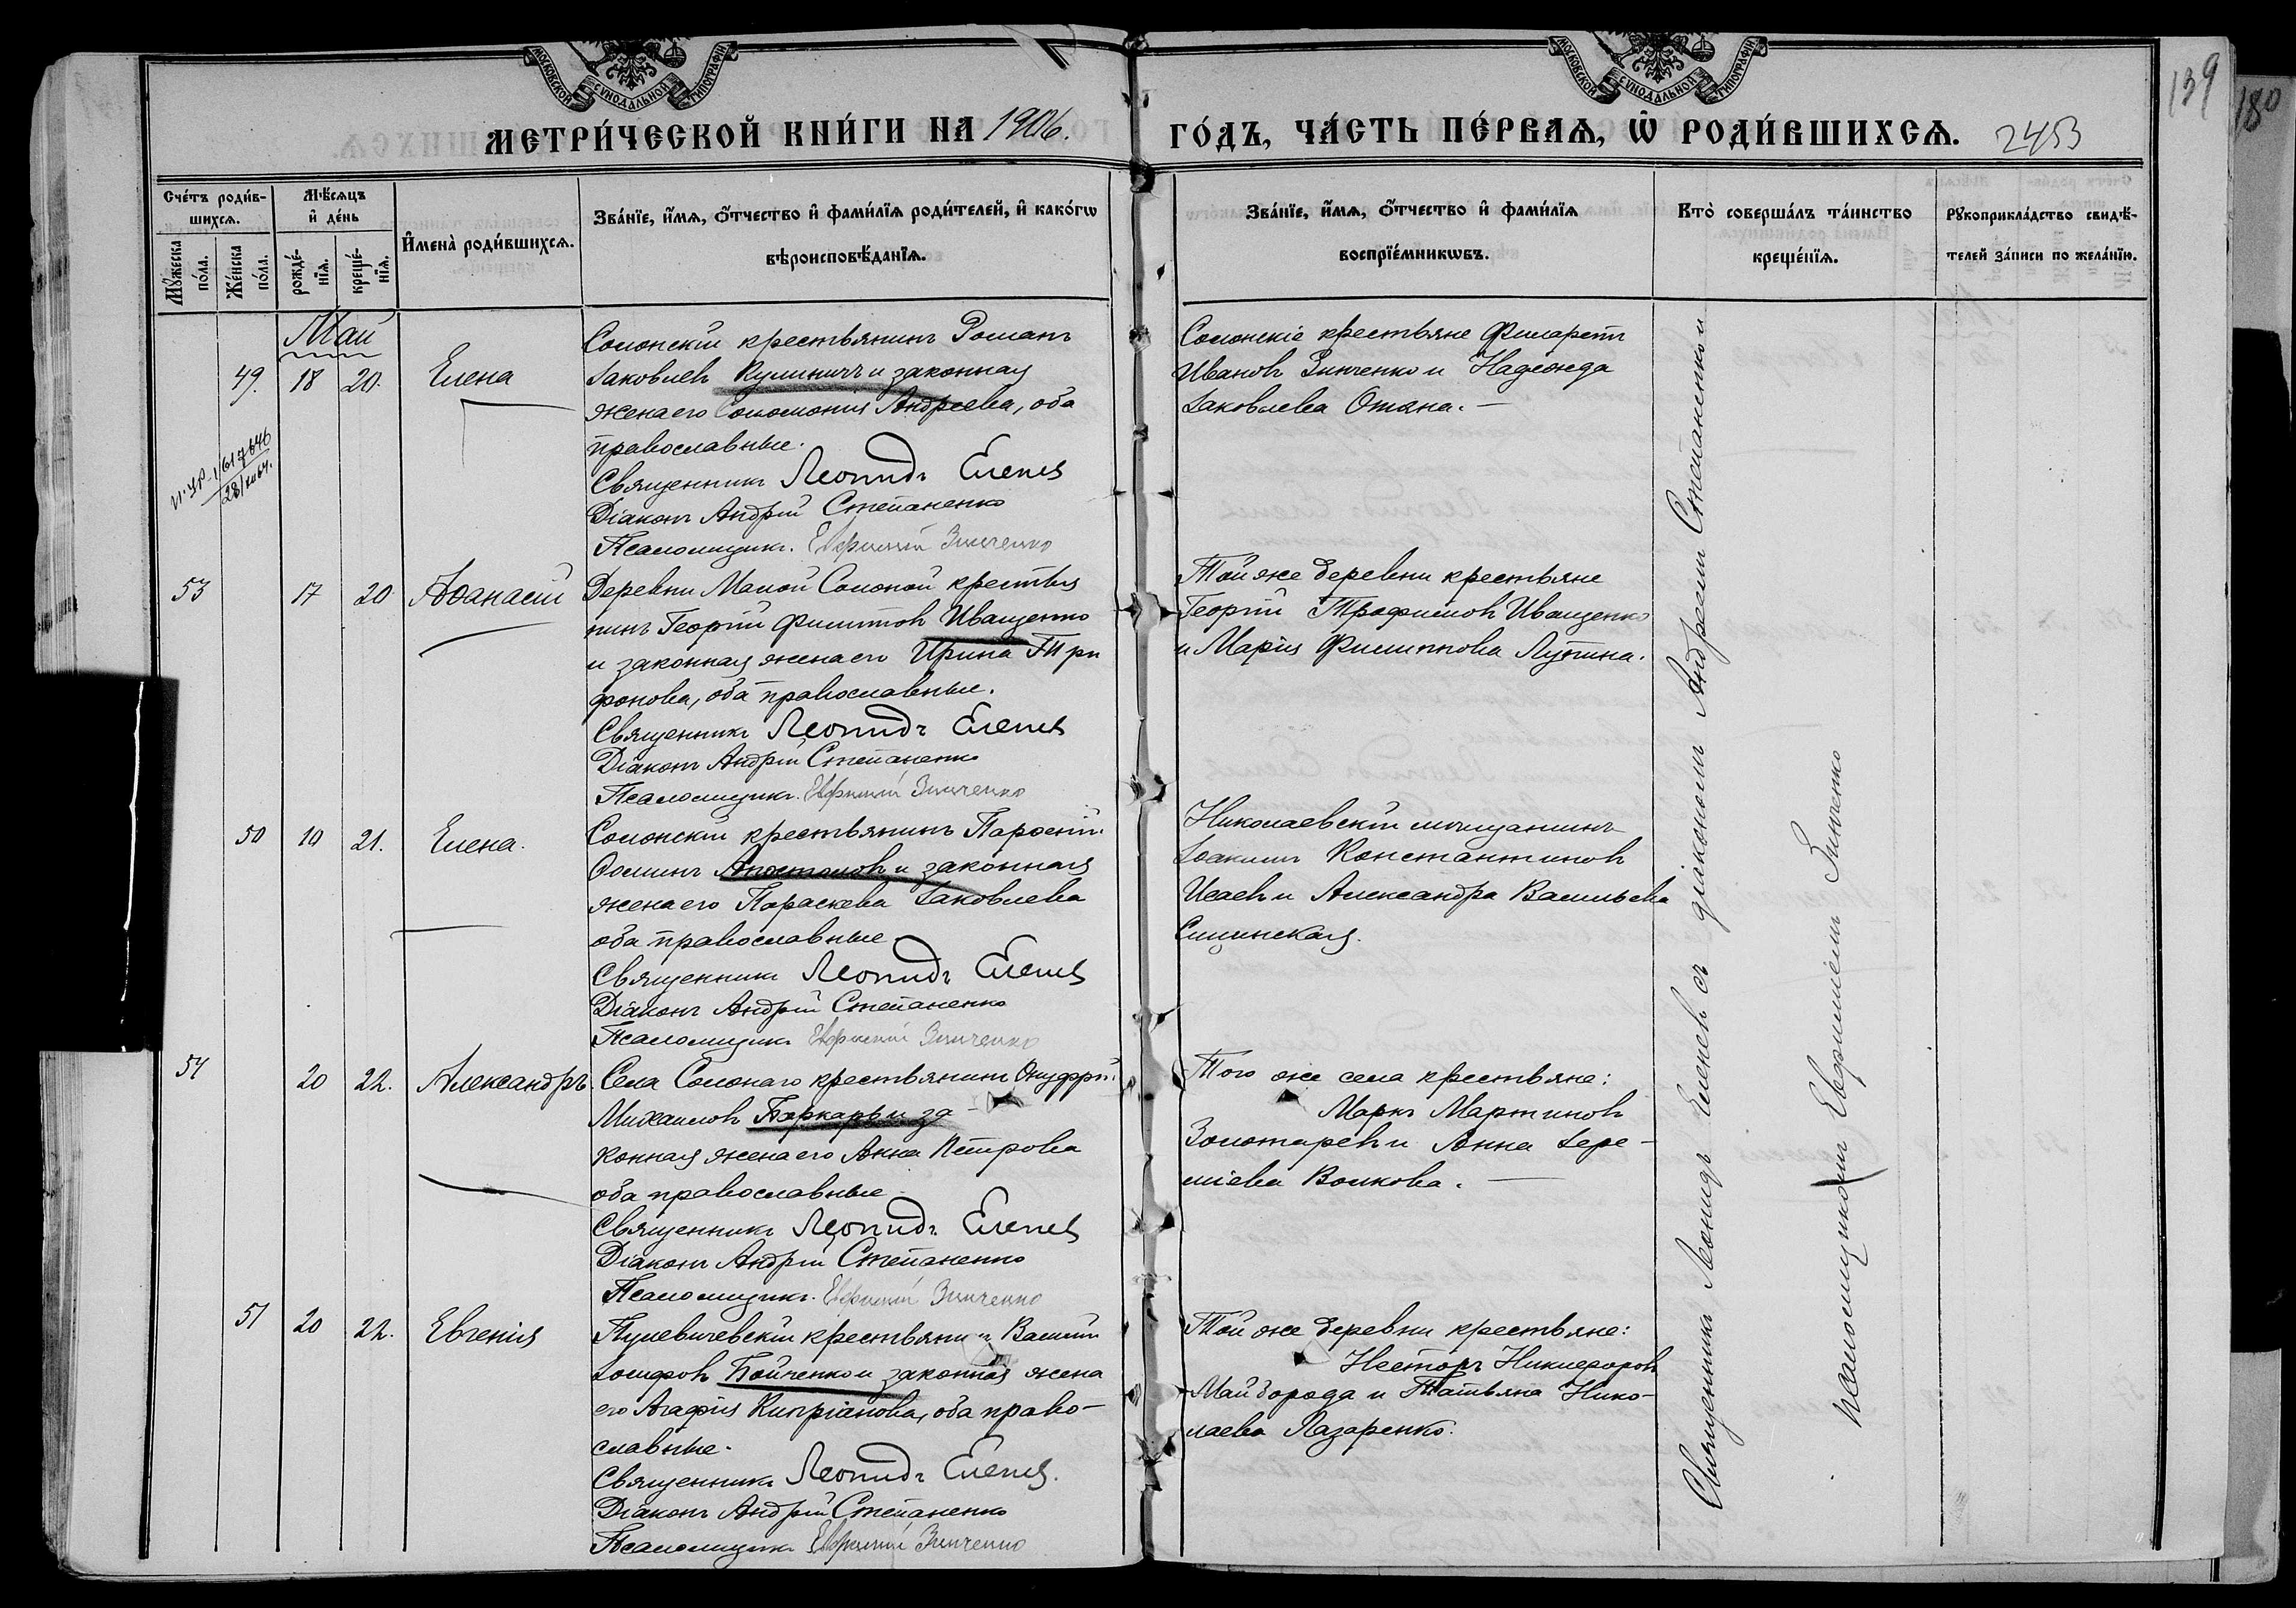 МОСКОВСКОЙ СѴНОДАЛЬНОЙ ТИПОГРАФІИ
МОСКОВСКОЙ СѴНОДАЛЬНОЙ ТИПОГРАФІИ
139
180
МЕТРИ́ЧЕСКОЙ КНИ́ГИ НА 1906.
ГО́ДЪ, ЧА́СТЬ ПЕ́РВАѦ, Ѡ҆ РОДИ́ВШИХСѦ. 2453
Сче́тъ роди́в-
шихсѧ.
Мꙋ́жеска
по́ла.
Же́нска
по́ла.
Мѣ́сѧцъ
и҆ де́нь
рожде́-
нїѧ.
креще́-
нїѧ.
И҆мена̀ роди́вшихсѧ.
Зва́нїе, и҆́мѧ, ѻ҆́тчество и҆ фами́лїѧ роди́телей, и҆ како́гѡ
вѣроисповѣ́данїѧ.
Зва́нїе, и҆́мѧ, ѻ҆́тчество и҆ фами́лїѧ
воспрїе́мникѡвъ.
Кто̀ соверша́лъ та́инство
креще́нїѧ.
Рꙋкоприкла́дство свидѣ́-
телей за́писи по жела́нїю.
Май
49. 18 20. Елена
Солонскій крестьянинъ Романъ
Іаковлевъ Кулиничъ и законная
жена его Соломонія Андреева, оба
православные.
Священникъ Леонидъ Еленевъ
Діаконъ Андрій Степаненко
Псаломщикъ. Евфимій Зинченко
Солонскіе крестьяне Филаретъ
Ивановъ Зинченко и Надежда
Іаковлева Отяна.—
53 17 20 Аѳанасій
Деревни Малой Солоной крестья
нинъ Георгій Филиповъ Иващенко
и законная жена его Ирина Три
фонова, оба православные.
Священникъ Леонидъ Еленевъ
Діаконъ Андрій Степаненко
Псаломщикъ. Евфимій Зинченко
Той же деревни крестьяне
Георгій Трофимовъ Иващенко
и Марія Филиппова Лупина.
50 19 21. Елена.
Солонскій крестьянинъ Парѳеній
Ѳоминъ Апостоловъ и законная
жена его Параскева Іаковлева
оба православные
Священникъ Леонидъ Еленевъ
Діаконъ Андрій Степаненко
Псаломщикъ Евфимій Зинченко
Николаевскій мѣщанинъ
Іоакимъ Константиновъ
Исаевъ и Александра Васильева
Сицинская.
54 20 22. Александръ
Села Солонаго крестьянинъ Онуфрій
Михаиловъ Боркарь и за-
конная жена его Анна Петрова
оба православные
Священникъ Леонидъ Еленевъ
Діаконъ Андрій Степаненко
Псаломщикъ. Евфимій Зинченко
Того же села крестьяне:
Маркъ Мартиновъ
Золотаревъ и Анна Іере-
міева Волкова.—
51 20 22. Евгенія
Пулевичевскій крестьянинъ Василій
Іосифовъ Бойченко и законная жена
его Агафія Кипріанова, оба право-
славные.
Священникъ Леонидъ Еленевъ.
Діаконъ Андрій Степаненко
Псаломщикъ Евфимій Зинченко
Той же деревни крестьяне:
Несторъ Никифоровъ
Майборода и Татьяна Нико-
лаева Лазаренко.
Священникъ Леонидъ Еленевъ съ діакономъ Андреемъ Степаненко и
псаломщикомъ Евфиміемъ Зинченко